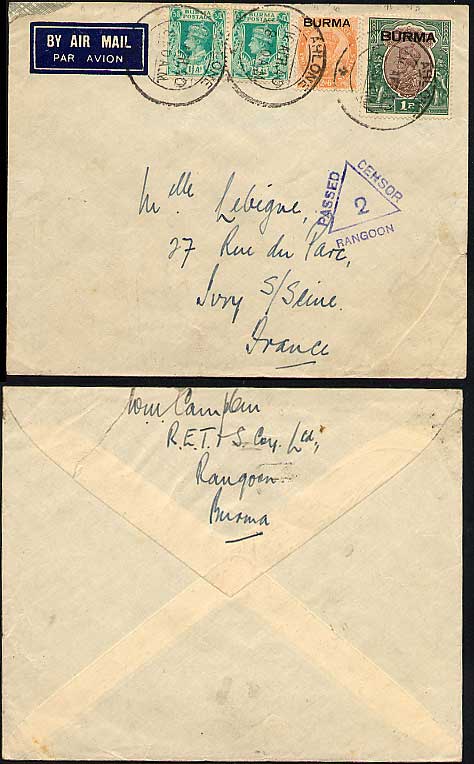 BY AIR MAIL
PAR AVION
BURMA
POSTAGE
BURMA
POSTAGE
BURMA
BURMA
AHLONE
PASSED
CENSOR
2
RANGOON
Mlle Lebigne,
27 Rue du Parc,
Ivry S/Seine.
France
R.E.T. & S. Coy. Ltd,
Rangoon
Burma